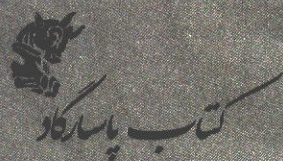 کتاب پاسارگاد